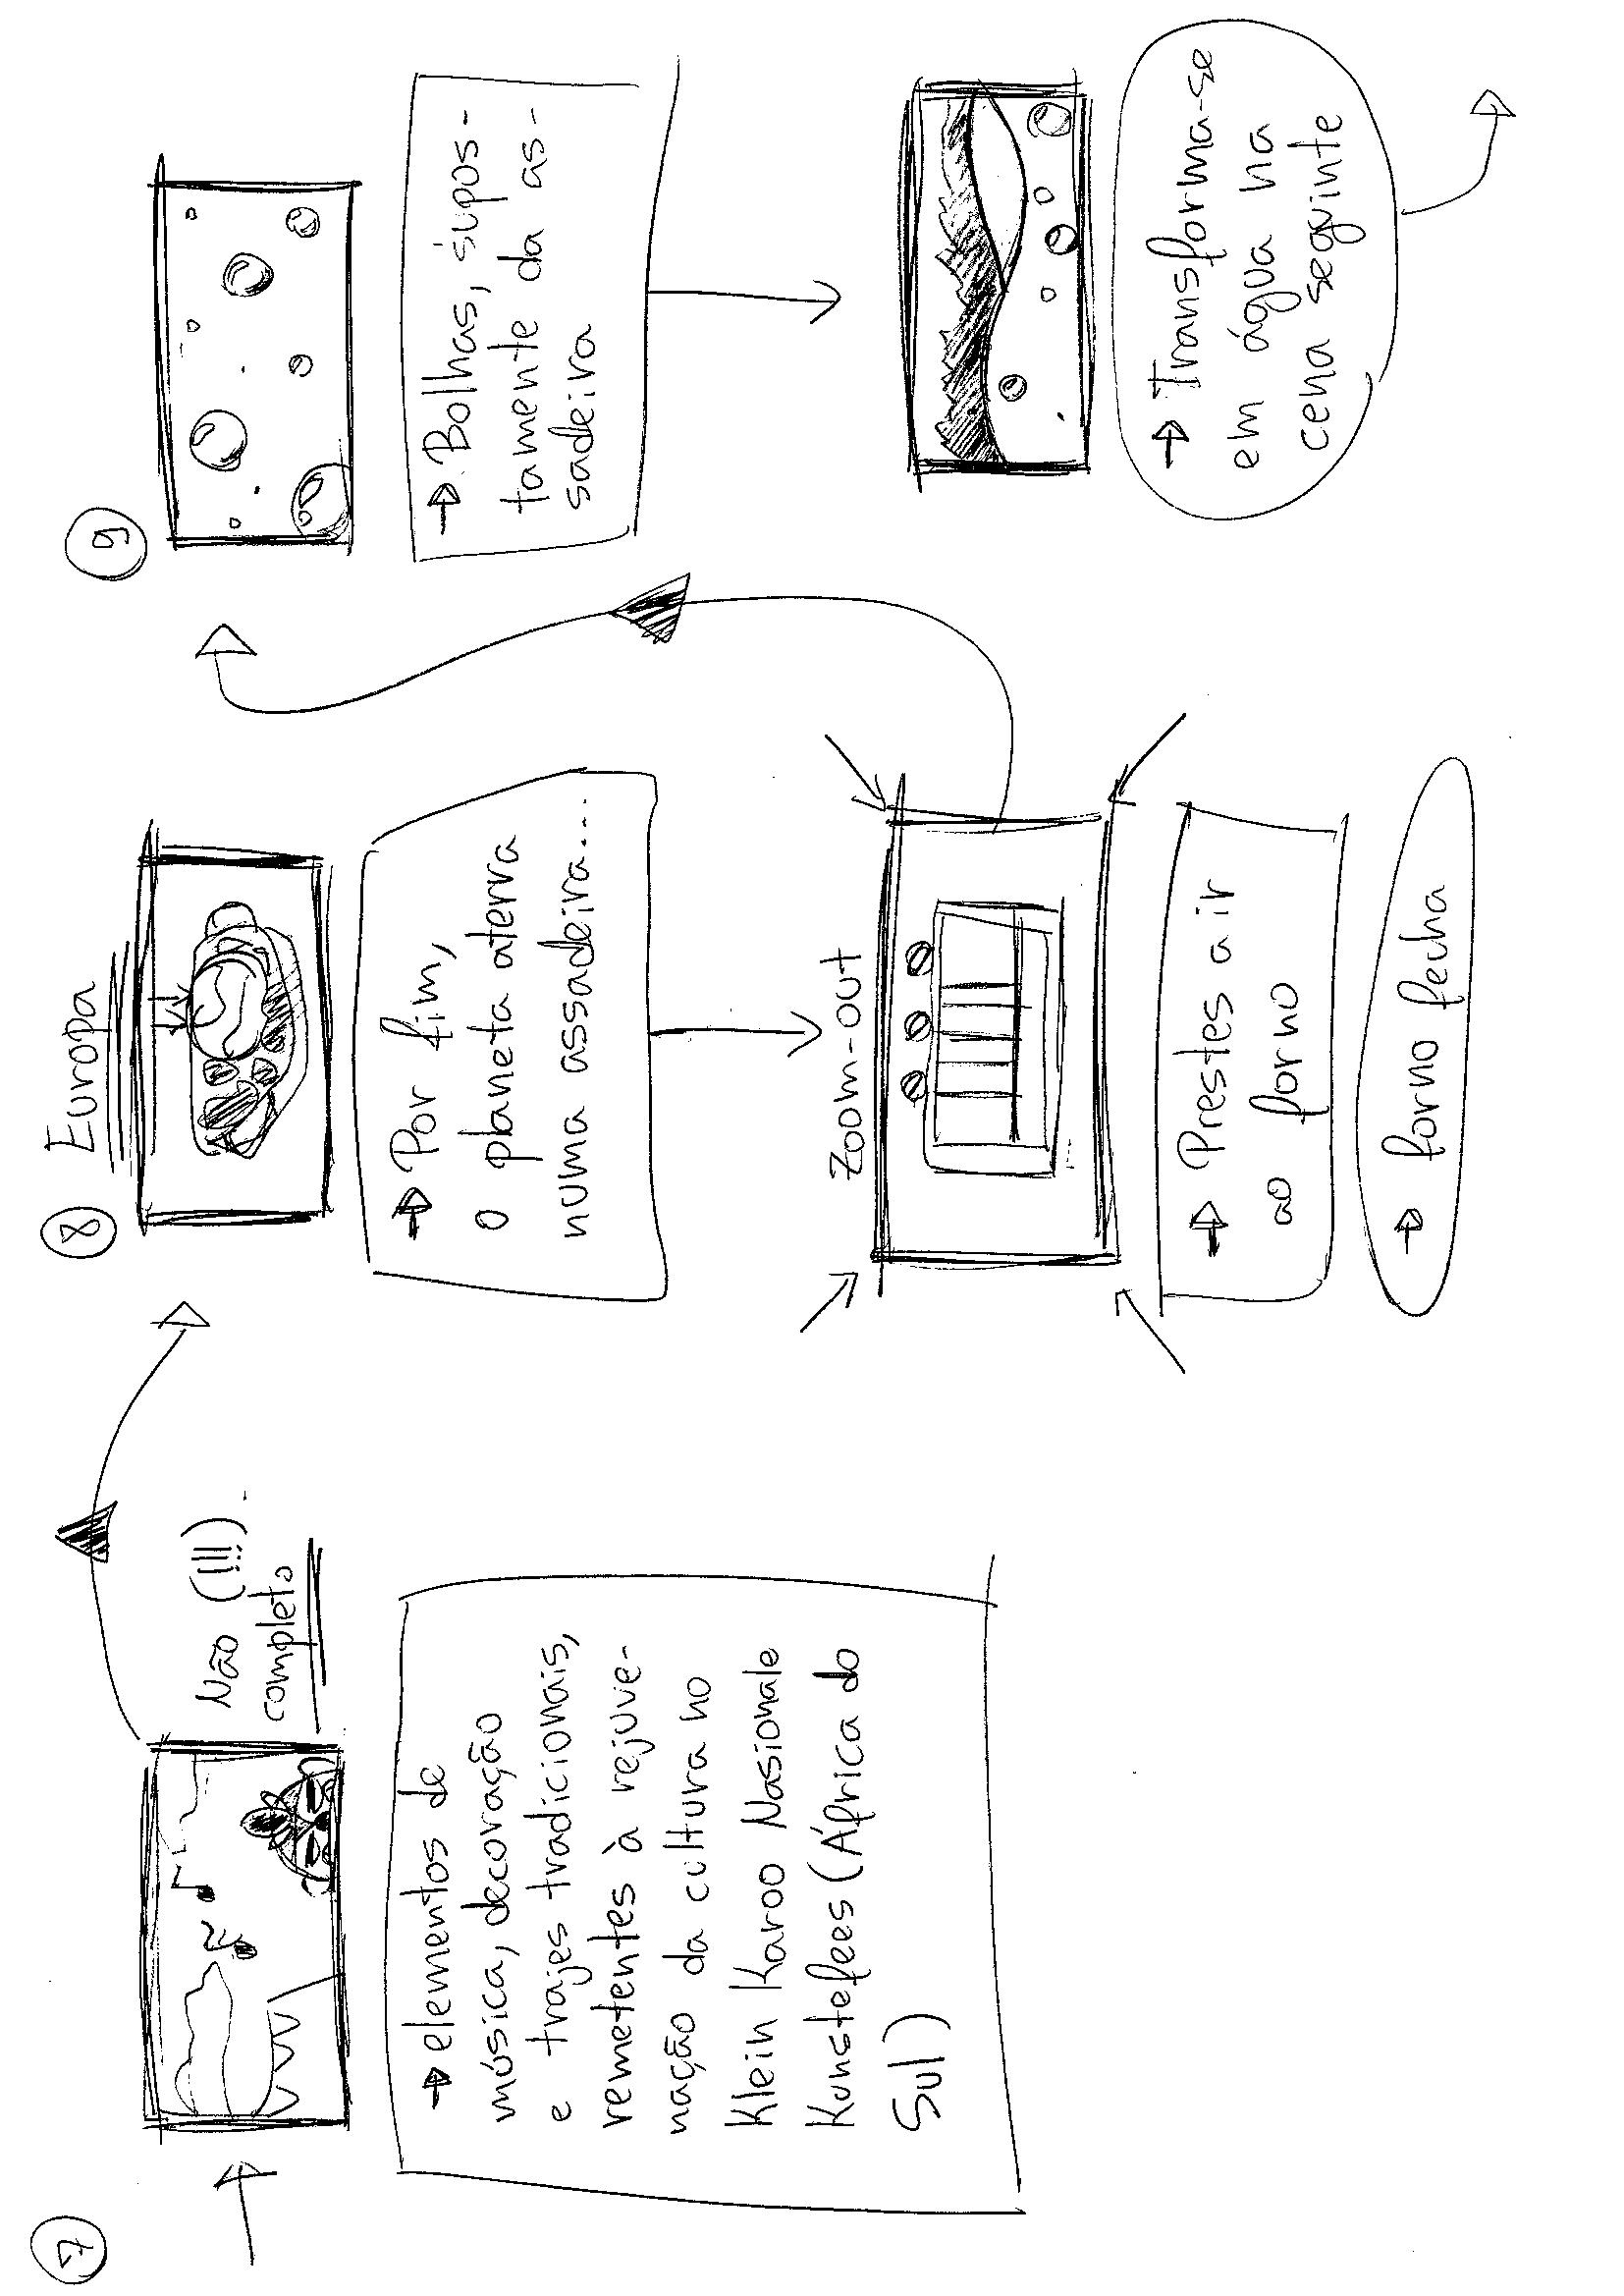 7
Não (!!!).
completo
→ elementos de
música, decoração
e trajes tradicionais,
remetentes à rejuve-
nação da cultura no
Klein Karoo Nasionale
Kunstefees (África do
Sul)
8
Europa
→ Por fim,
o planeta aterra
numa assadeira...
Zoom-out
→ Prestes a ir
ao forno
→ forno fecha
9
→ Bolhas, supos-
tamente da as-
sadeira
→ Transforma-se
em água na
cena seguinte